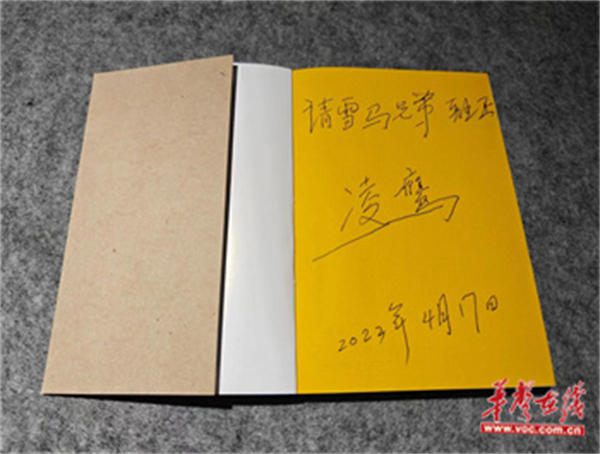 请雪马兄弟雅正
凌鹰
2023年4月17日
华声在线
www.voc.com.cn